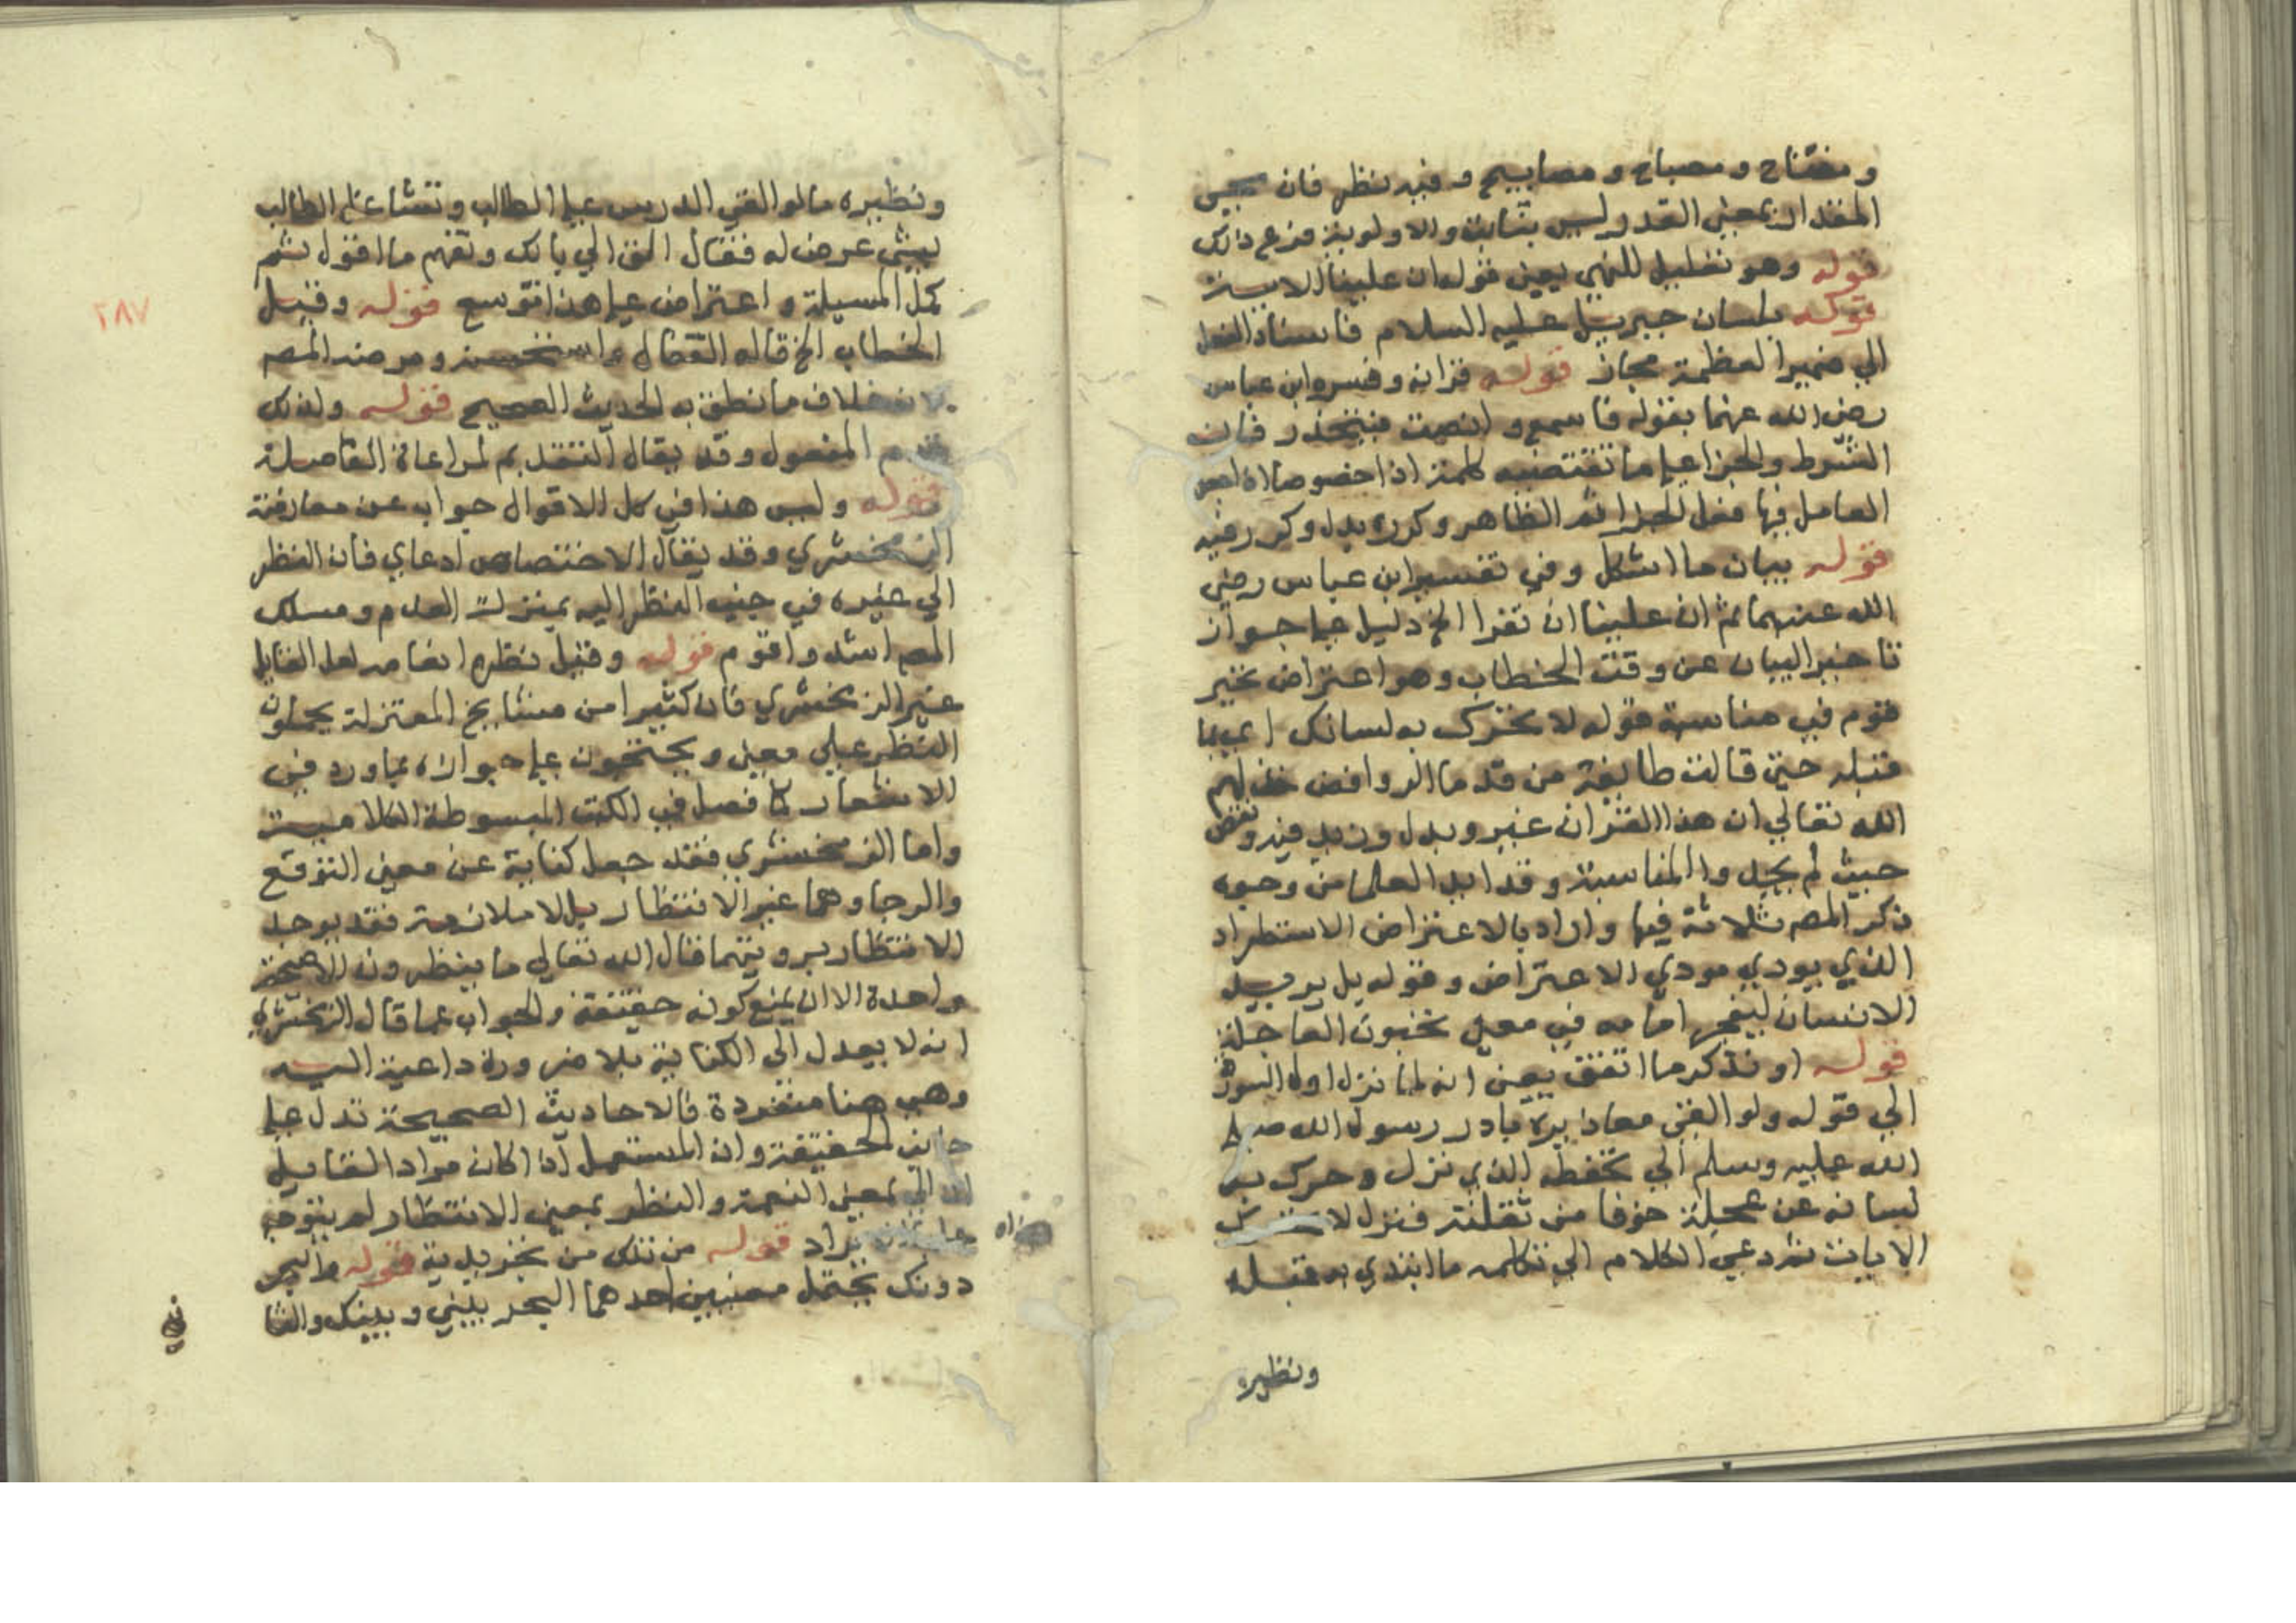 ومفتاح ومصباح ومصابيح وفيه نظر فان مجيى
المقدار بمعنى القدر ليس بثابت والاولوية فرع ذلك
قوله وهو تعليل للنهي يعني قوله ان علينا الاية
قوله بلسان جبريل عليه السلام فاسناد الفعل
الي ضمير العظمة مجاز قوله قرانه وفسره ابن عباس
رضى الله عنهما بقوله فاسمع وانصت فيتحذر فان
الشرط والجزا علي ما تقتضيه كلمة اذا خصوصا اذا
العامل فيها فعل الجزا ثم الظاهر وكرره بدل وكرر فيه
قوله بيان ما اشكل وفي تفسير ابن عباس رضي
الله عنهما ثم ان علينا ان تقرا الخ دليل علي جواز
تاخير البيان عن وقت الخطاب وهو اعتراض تحير
قوم في مناسبة قوله لا تحرك به لسانك اي بما
قبله حتي قالت طايفة من قدما الروافض خذلهم
الله تعالي ان هذا القران غير وبدل وزيد فيه ونقص
حيث لم يجدوا المناسبة وقد ابدا العلما من وجوه
ذكر المصـ ثلاثة فيها واراد بالاعتراض الاستطراد
الذي يودي مودي الاعتراض وقوله بل يريد
الانسان ليفجر امامه في معنى تحبون العاجلة
قوله او تذكر ما اتفق يعنى انه لما نزل اول السورة
الي قوله ولو القى معاذيره بادر رسول الله صلى
الله عليه وسلم الي تحفظ الذي نزل وحرك به
لسانه عن عجلة خوفا من تفلته فنزل لا تحرك
الايات ثم دعي الكلام الي تكلمه ما ابتدي به قبله
ونظيره
ونظيره ما لو القى المدريس علي الطالب وتشاغل الطالب
بشى عرض له فقال الق الي بالك وتفهم ما اقول ثم
كمل المسيلة واعتراض علي هذا توسع قوله وقيل
الخطاب الخ قاله القفال واستحسنه ومرضه المصـ
لانه خلاف ما نطق به الحديث الصحيح قوله ولذلك
قدم المفعول وقد يقال التقديم لمراعاة الفاصلة
قوله وليس هذا في كل الاقوال جواب عن معارضة
الزمخشري وقد يقال الاختصاص ادعاي فان النظر
الي غيره في جنب النظر اليه بمنزلة العدم ومسلك
المصـ اسد واقوم قوله وقيل نظره انعامه لعل القايل
غير الزمخشري فان كثيرا من مشايخ المعتزلة يحملون
النظر على معنى ويحتجون علي جوازه بما ورد في
الاشعار كما فصل في الكتب المبسوطة الكلامية
واما الزمخشري فقد جعل كناية عن معنى التوقع
والرجا وهما غير الانتظار بل لا ملازمة فقد يوجد
الانتظار بدونهما قال الله تعالي ما ينظرون الا صيحة
واحدة الا ان يمنع كونه حقيقة والجواب عما قال الزمخشري
انه لا يعدل الى الكناية بلا ضرورة داعية اليه
وهى هنا منفردة فالاحاديث الصحيحة تدل علي
جانب الحقيقة وان المستعمل اذا كان مراد القايل
ان الي بمعنى النعمة والنظر بمعنى الانتظار لم يتوجه
يراد قوله من تلك من تجريدية قوله والبحر
دونك يحتمل معنيين احدهما البحر بيني وبينك والثا
في
٢٨٧